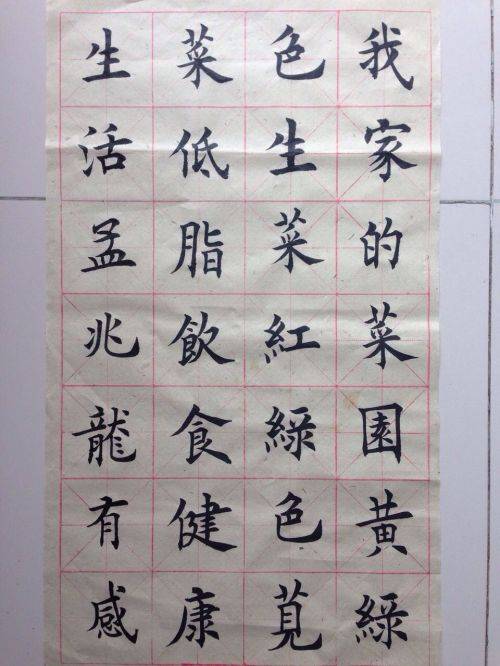 我家的菜園黄綠
色生菜紅綠色莧
菜低脂飲食健康
生活孟兆龍有感